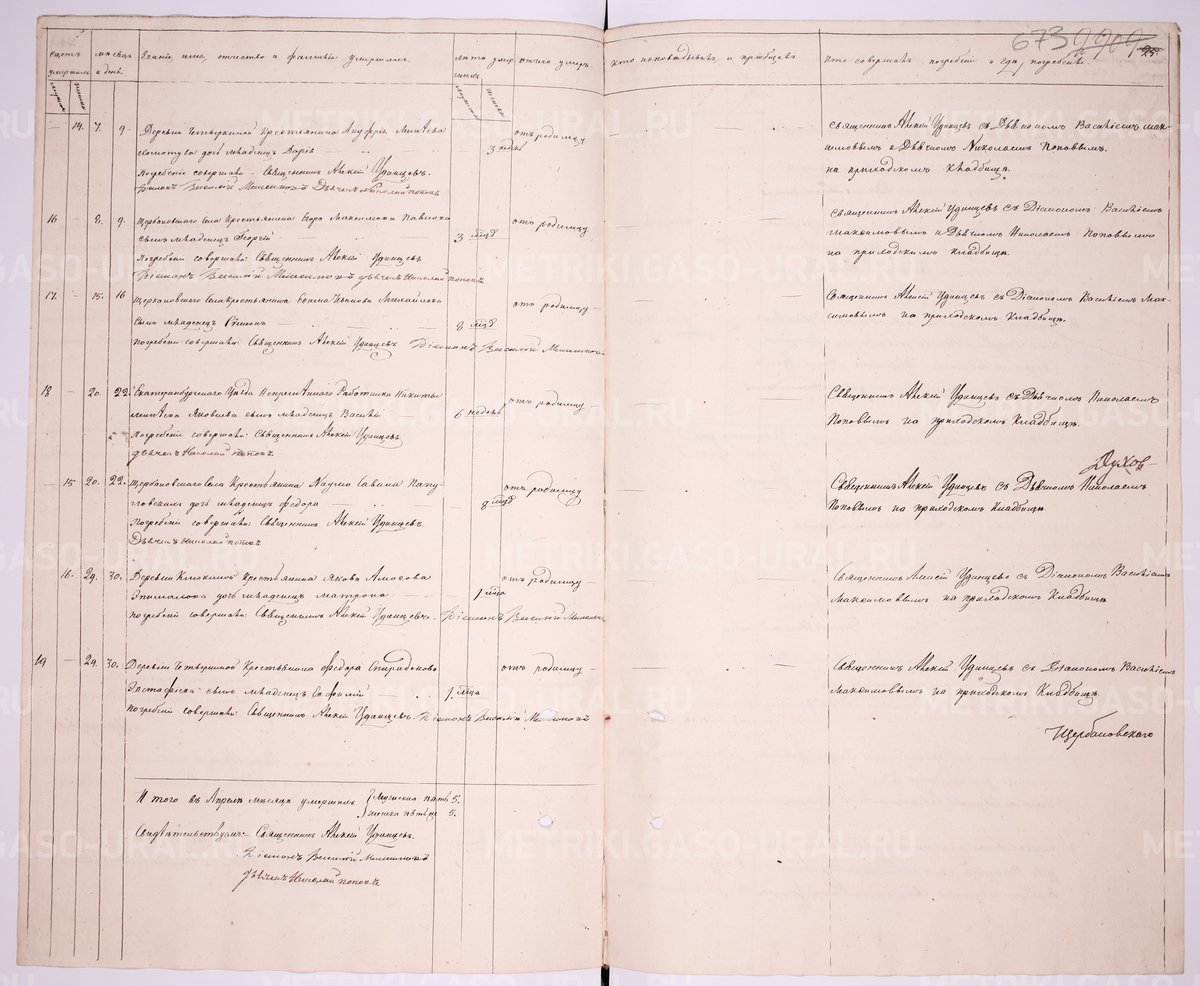 673
25
Счетъ умершихъ
Мѣсяцъ и день.
Званіе имя, отчество и фамилія умершихъ.
Лѣта умершихъ
отъ чего умеръ.
Кто исповѣдывалъ и пріобщалъ
Кто совершалъ погребеніе и гдѣ погребены.
14. 7. 9. Деревни Четыркиной Крестьянина Ануфрія Минѣева
дочь младенецъ Дарія
3 недѣль
отъ родимцу
Погребеніе совершали: Священникъ Алексій Удинцевъ.
Діаконъ Василій Максимовъ Дьячекъ Николай Поповъ
Священникъ Алексій Удинцевъ съ Діакономъ Василіемъ Мак-
симовымъ и Дьячкомъ Николаемъ Поповымъ.
на приходскомъ кладбищѣ.
16 8. 9. Щербаковского села Крестьянина Егора Максимова Павлова
сынъ младенецъ Георгій
3 мѣсц
отъ родимцу
Погребеніе совершали: Священникъ Алексій Удинцевъ
Діаконъ Василій Максимовъ дьячекъ Николай Поповъ
Священникъ Алексій Удинцевъ съ Діакономъ Василіемъ
Максимовымъ и Дьячкомъ Николаемъ Поповымъ
на приходскомъ кладбищѣ.
17. 15. 16 Щербаковского села Крестьянина Ефима Иванова Михайлова
сынъ младенецъ Симеонъ
8 мѣсц
отъ родимцу
Погребеніе совершали: Священникъ Алексій Удинцевъ Діаконъ Василій Максимовъ
Священникъ Алексій Удинцевъ съ Діакономъ Василіемъ Мак-
симовымъ на приходскомъ кладбищѣ.
18 20. 22. Екатеринбургскаго Уѣзда Непремѣннаго Работника Никиты
Яковлева сынъ младенецъ Василій
6 недель
отъ родимцу
Погребеніе совершали: Священникъ Алексій Удинцевъ
дьячекъ Николай Поповъ
Священникъ Алексій Удинцевъ съ Дьячкомъ Николаемъ
Поповымъ на приходскомъ кладбищѣ.
Духов-
15 20. 22. Щербаковского села Крестьянина Наума Савина Папу-
ловскихъ дочь младенецъ Федора
8 мѣсц
отъ родимцу
Погребеніе совершали: Священникъ Алексій Удинцевъ.
Дьячекъ Николай Поповъ
Священникъ Алексій Удинцевъ съ Дьячкомъ Николаемъ
Поповымъ на приходскомъ кладбищѣ.
16. 29. 30. Деревни Крестьянина Якова Амосова
дочь младенецъ Матрона
1 мѣца
отъ родимцу
Погребеніе совершали: Священникъ Алексій Удинцевъ. Діаконъ Василій Максимовъ
Священникъ Алексій Удинцевъ съ Діакономъ Василіемъ
Максимовымъ на приходскомъ кладбищѣ
19 29. 30. Деревни Четыркиной Крестьянина Федора Спиридонова
сынъ младенецъ
1 мѣца
отъ родимцу
Погребеніе совершали: Священникъ Алексій Удинцевъ. Діаконъ Василій Максимовъ
Священникъ Алексій Удинцевъ съ Діакономъ Василіемъ
Максимовымъ на приходскомъ кладбищѣ.
Щербаковского
И того въ Апрелѣ мѣсяцѣ умершихъ Мужеска пять 5.
женска пять 5.
Свидѣтельствуемъ: Священникъ Алексій Удинцевъ.
Діаконъ Василій Максимовъ
дьячекъ Николай Поповъ
METRIKI.GASO-URAL.RU